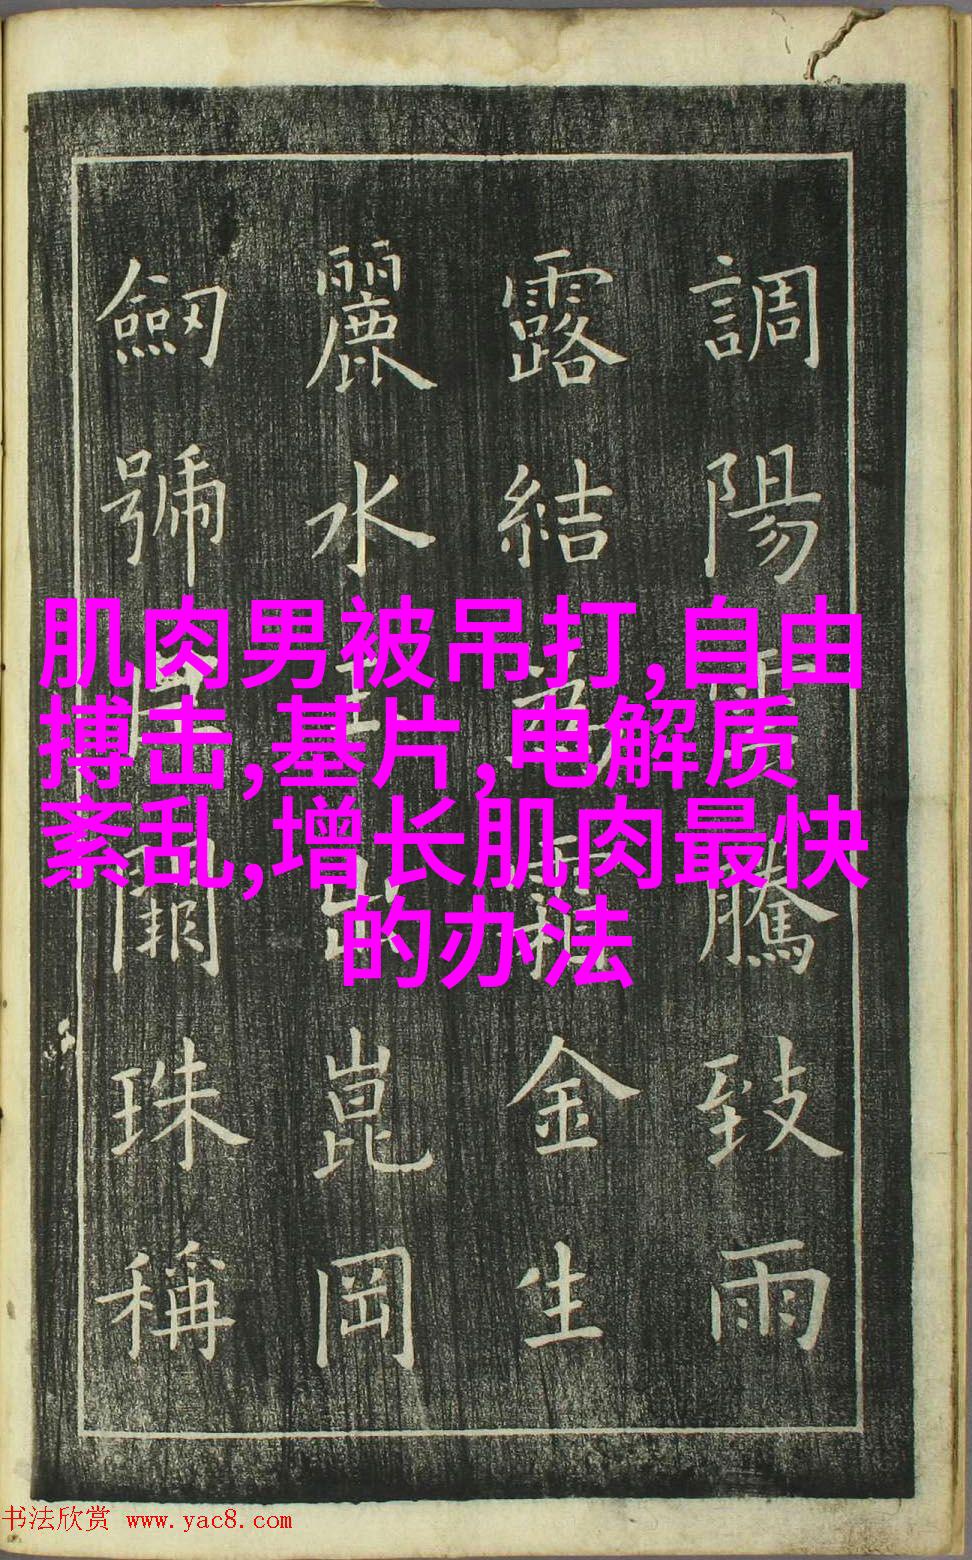 調陽騰致雨
露結為金生
麗水崑岡
劒號巨闕珠稱
肌肉男被吊打,自由
搏击,基片,电解质
紊乱,增长肌肉最快
的办法
书法欣赏 www.yac8.com